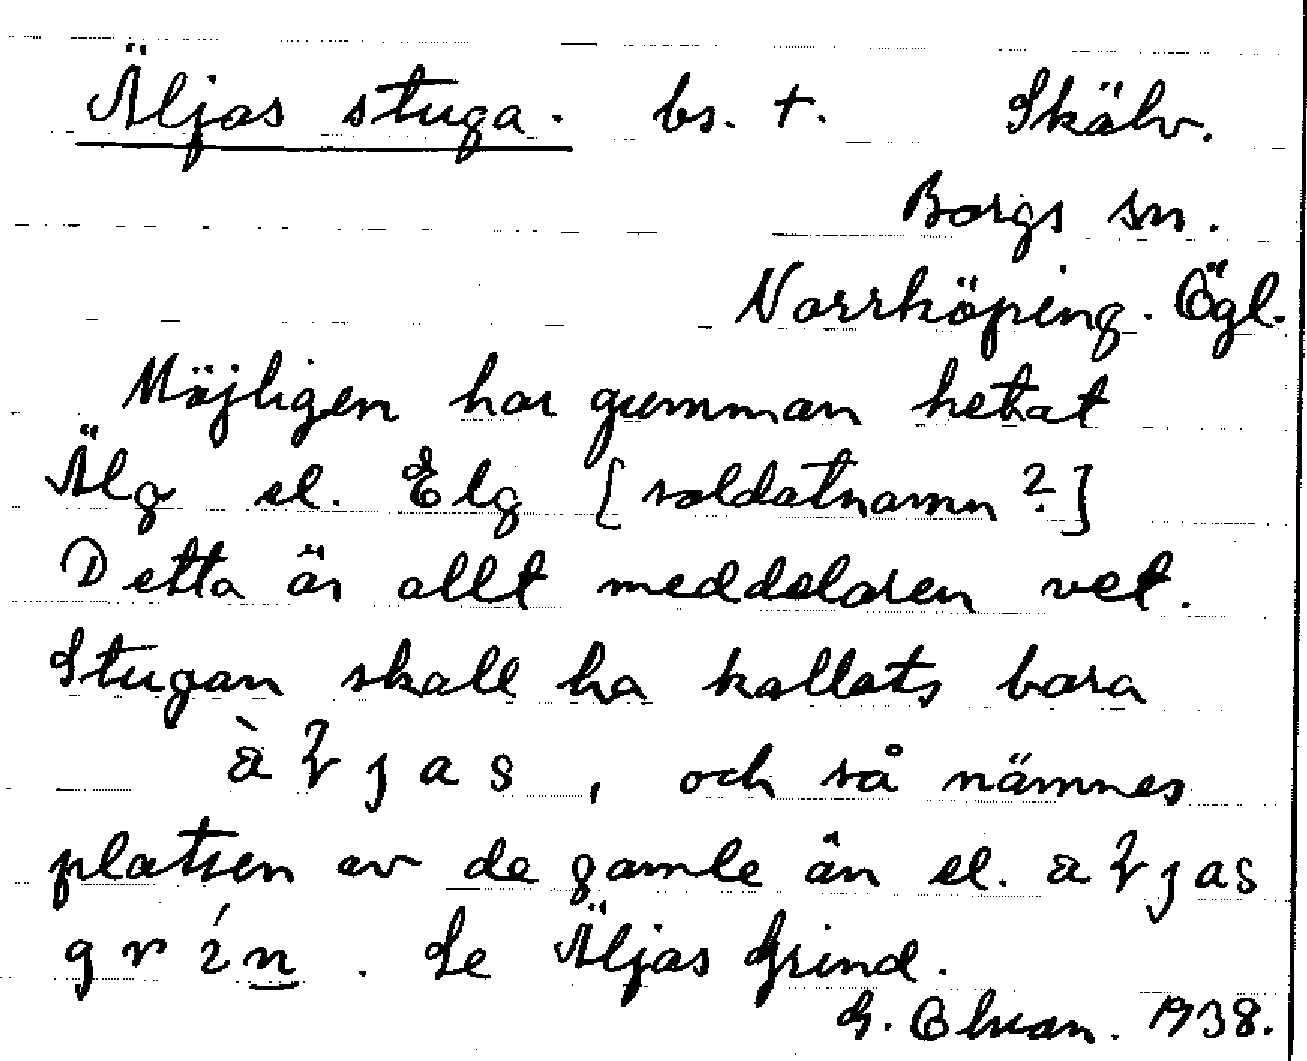 Äljas stuga. bs. †. Skälv.
Borgs sn.
Norrköping. Ögl.
Möjligen har gumman hetat
Älg el. Elg [soldatnamn?]
Detta är allt meddelaren vet.
Stugan skall ha kallats bara
, och så nämnes
platsen av de gamle än el.
. Se Äljas Grind.
G. 1938.